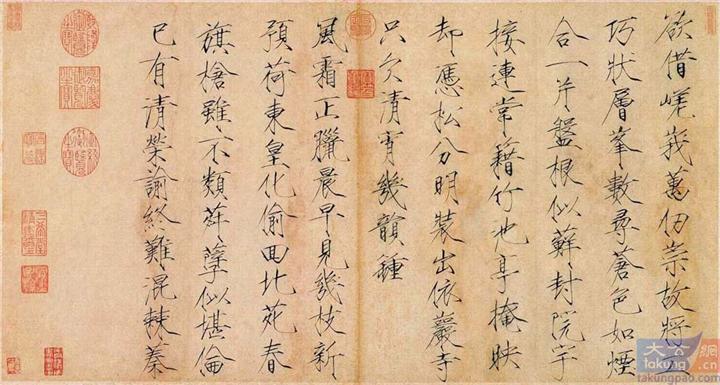 欲借嵯峩萬仞崇故將工
巧狀層峯數尋蒼色如煙
合一片盤根似蘚封院宇
接連常籍竹池亭掩映
却憑松分明裝出依巖寺
只欠清宵幾韻鍾
風霜正臘晨早見幾枝新
預荷東皇化偷回北苑春
旗槍雖不類荈孽似堪倫
已有清榮諭終難混棘蓁
大公網
takung.cn
takungpao.com